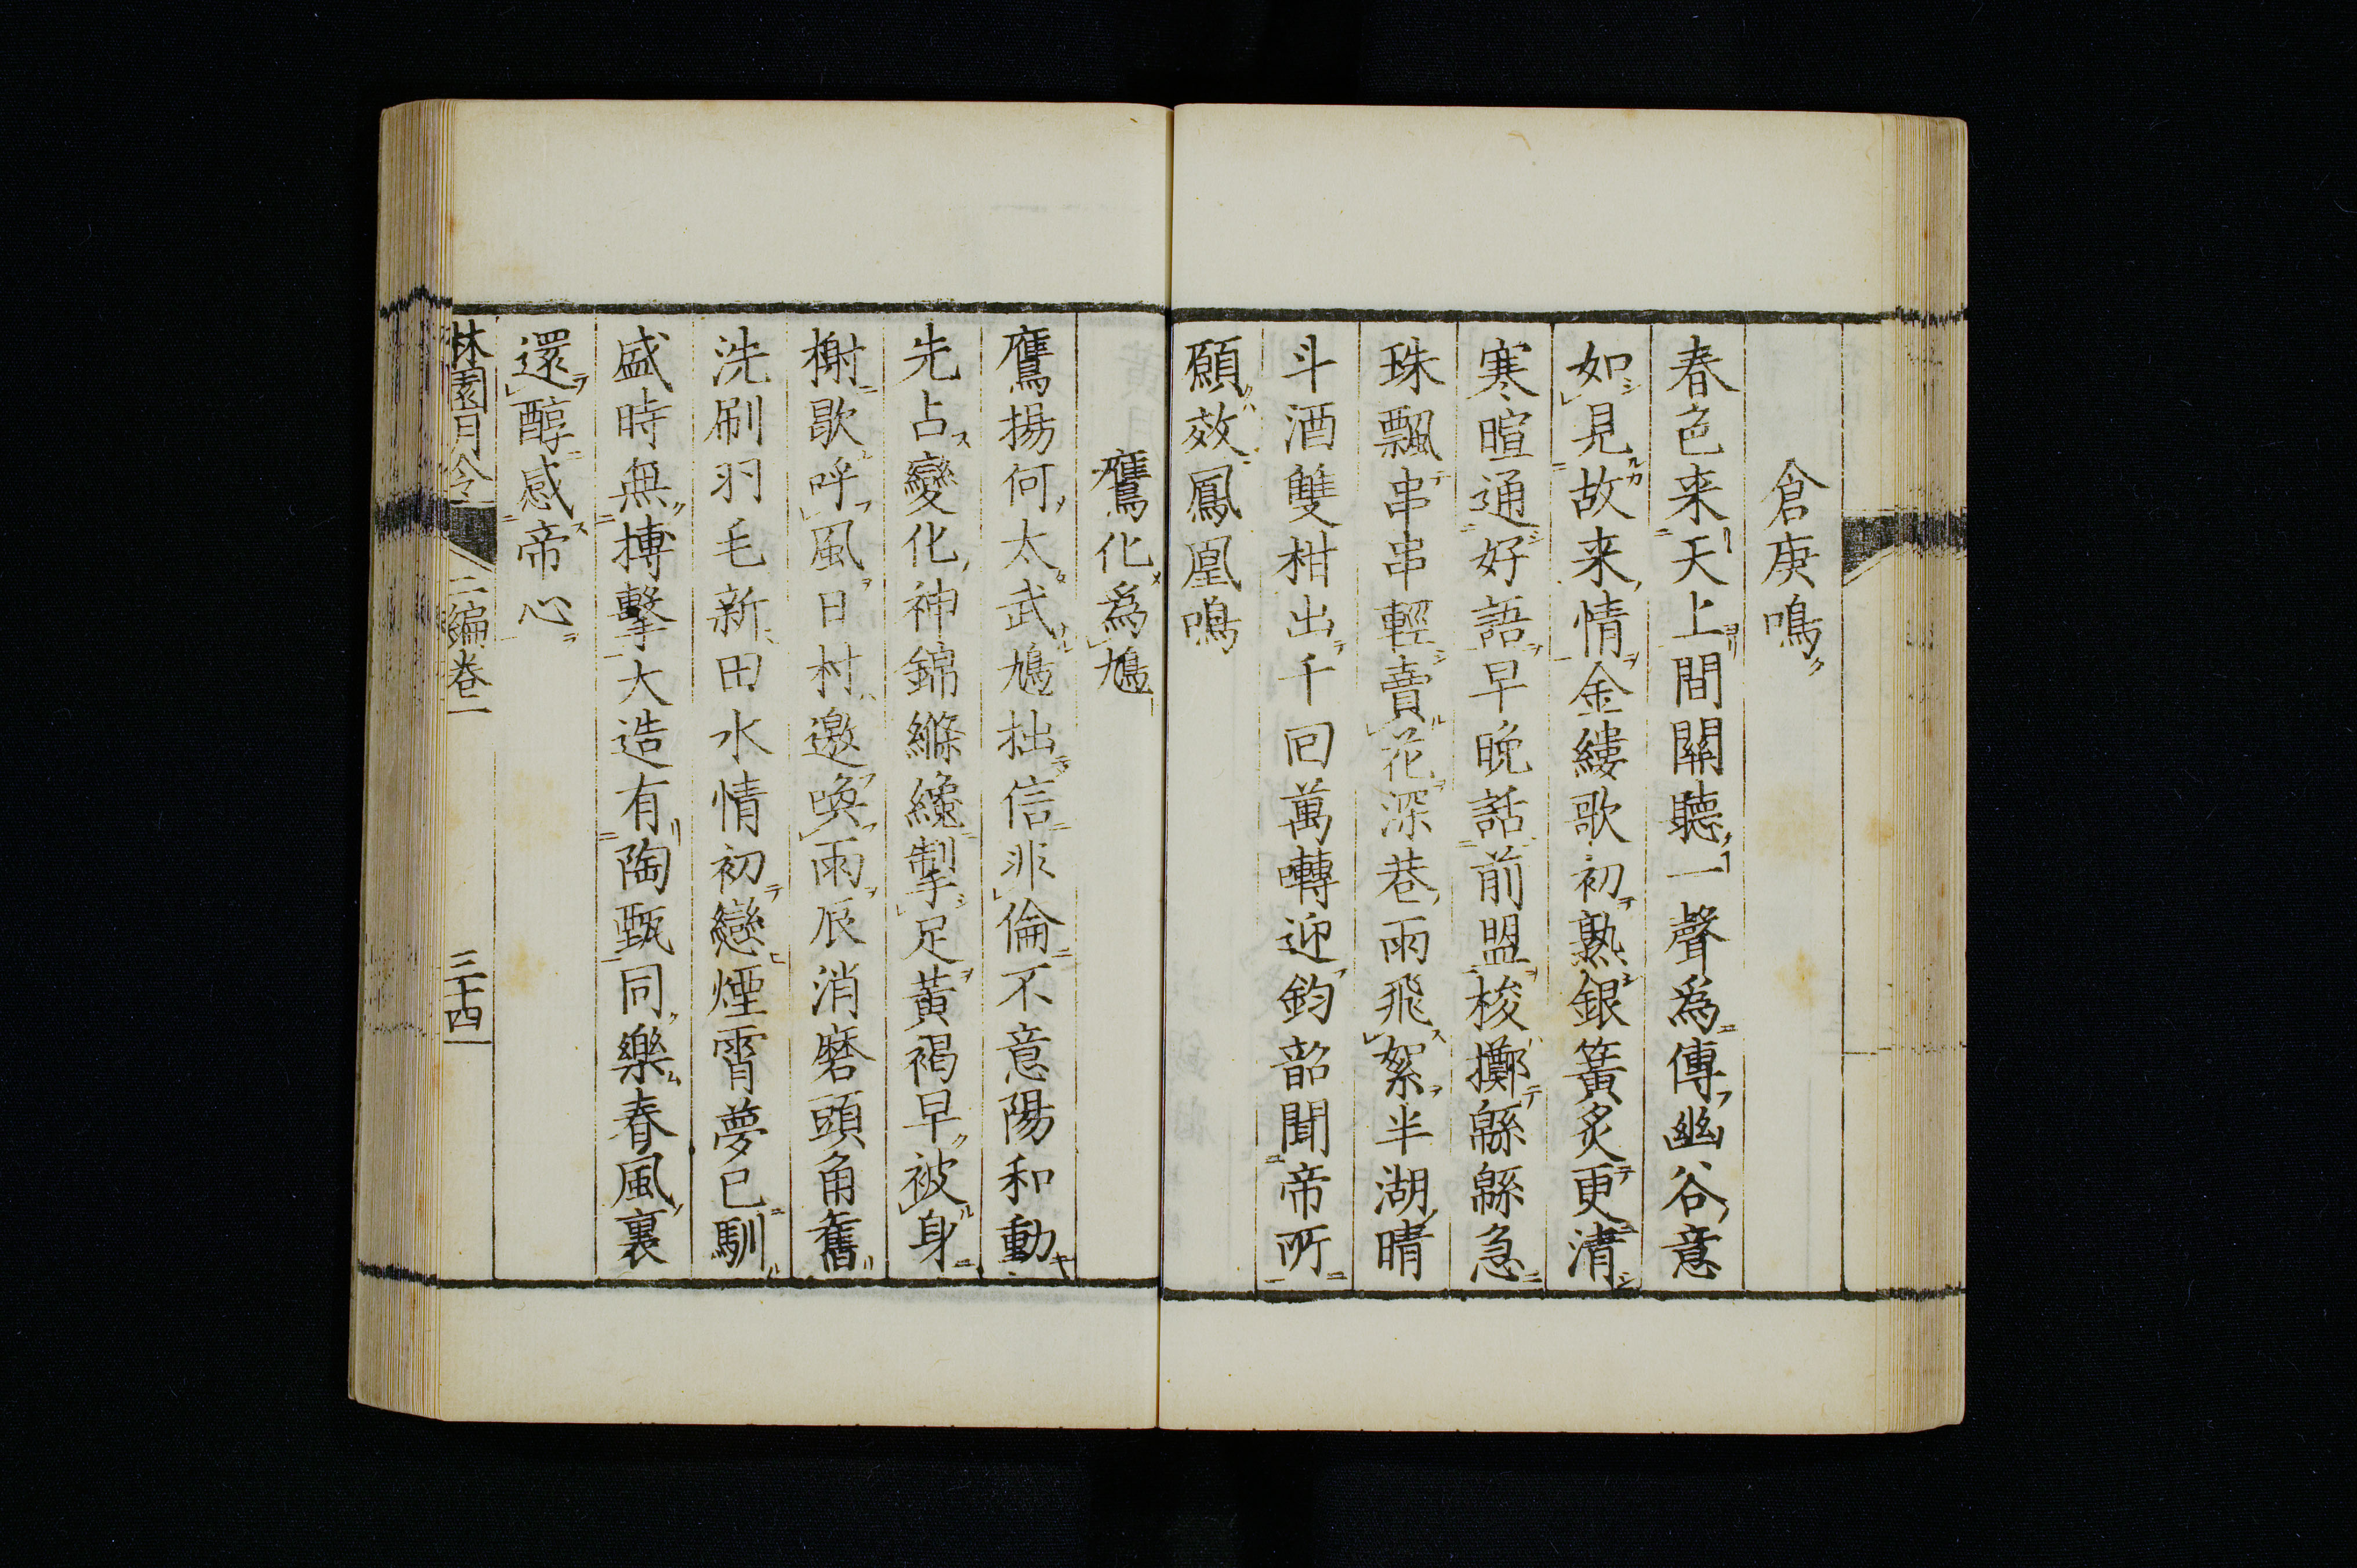 倉庚鳴
春色来天上間關聽一聲為傳幽谷意
如見故来情金縷歌初熟銀簧炙更清
寒暄通好語早晩話前盟梭擲緜緜急
珠飄串串輕賣花深巷雨飛絮半湖晴
斗酒雙柑出千回萬囀迎鈞韶聞帝所
願效鳳凰鳴
鷹化為鳩
鷹揚何太武鳩拙信非倫不意陽和動
先占變化神錦絛纔掣足黃褐早被身
榭歇呼風日村邀喚雨辰消磨頭角舊
洗刷羽毛新田水情初戀煙霄夢已馴
盛時無摶擊大造有陶甄同樂春風裏
還醇感帝心
林園月令
二編卷一
三十四